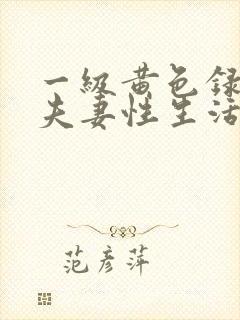 一级黄色録
夫妻性生活
范彦萍